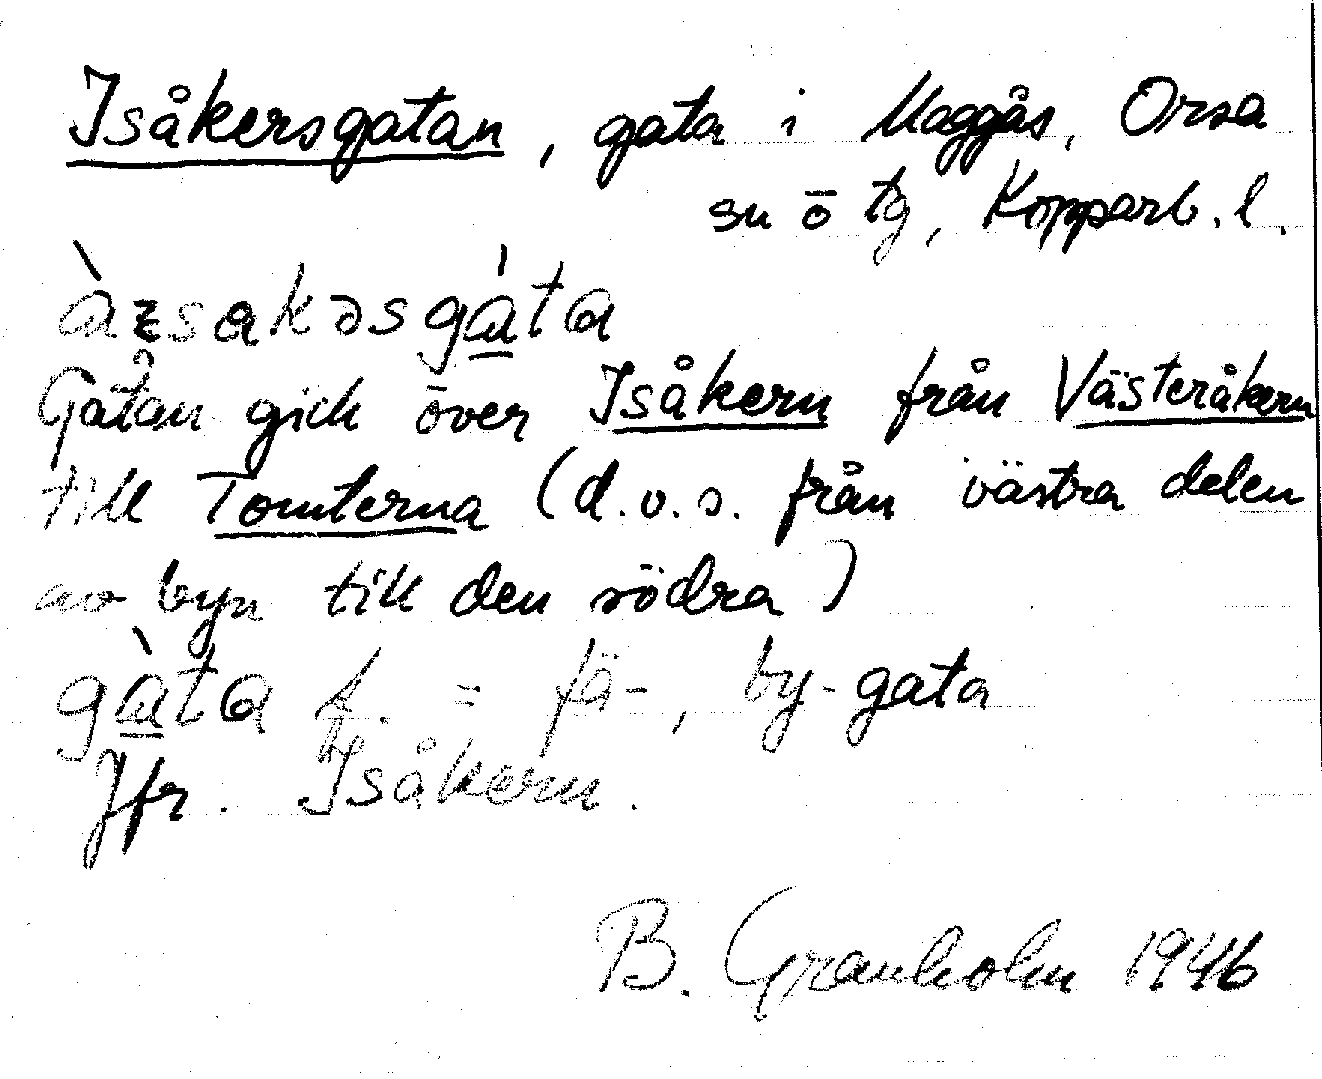 Isåkersgatan, gata i Maggås, Orsa
sn ō tg, Kopparb. l.
Gatan gick över Isåkern från Västeråkern
till Tomterna (d.v.s. från västra delen
av byn till den södra)
gàta f. = fä-, by-gata
Jfr. Isåkern.
B. Granholm 1946